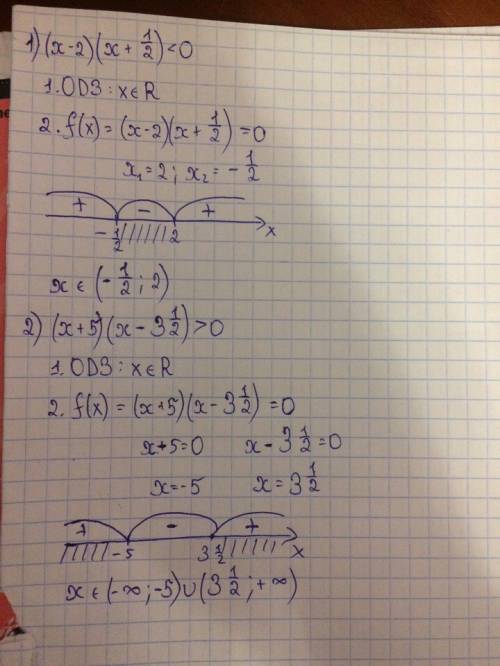 1) (x-2)(x+ 1/2)<0
1. ODЗ: x∈R
2. f(x) = (x-2)(x+ 1/2) = 0
x₁=2; x₂= - 1/2
+ - +
- 1/2 2 x
x ∈ (- 1/2; 2)
2) (x+5)(x- 3 1/2)>0
1. ODЗ: x∈R
2. f(x) = (x+5)(x- 3 1/2) = 0
x+5=0 x- 3 1/2 =0
x=-5 x= 3 1/2
+ - +
-5 3 1/2 x
x ∈ (-∞; -5)∪(3 1/2; +∞)